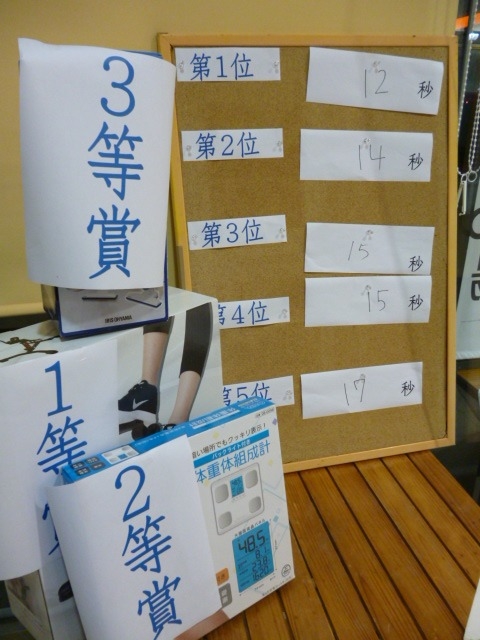 3等賞
IRIS OHYAMA
第1位
12 秒
第2位
14 秒
第3位
15 秒
第4位
15 秒
第5位
17 秒
1等
2等賞
暗い場所でもクッキリ表示!
バックライト付き
体重体組成計
48.5